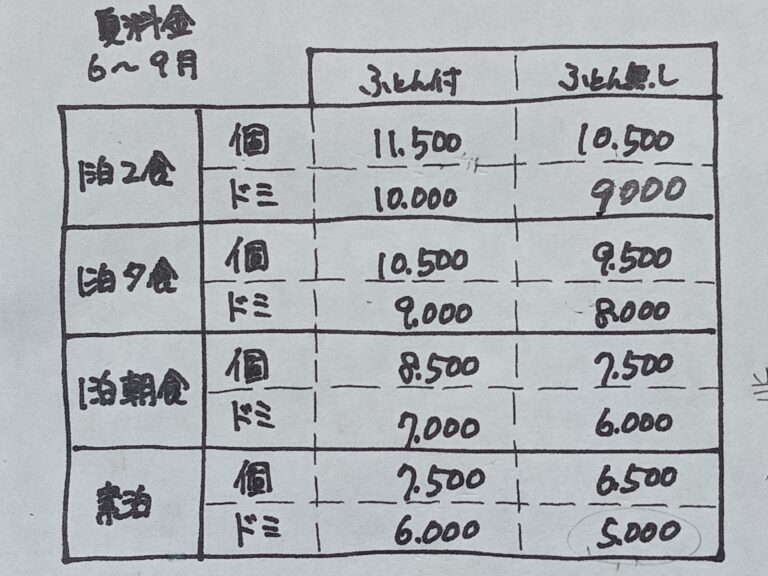 夏料金
6〜9月
ふとん付 ふとん無し
1泊2食 個 11.500 10.500
ドミ 10.000 9000
1泊夕食 個 10.500 9.500
ドミ 9.000 8.000
1泊朝食 個 8.500 7.500
ドミ 7.000 6.000
素泊 個 7.500 6.500
ドミ 6.000 5.000